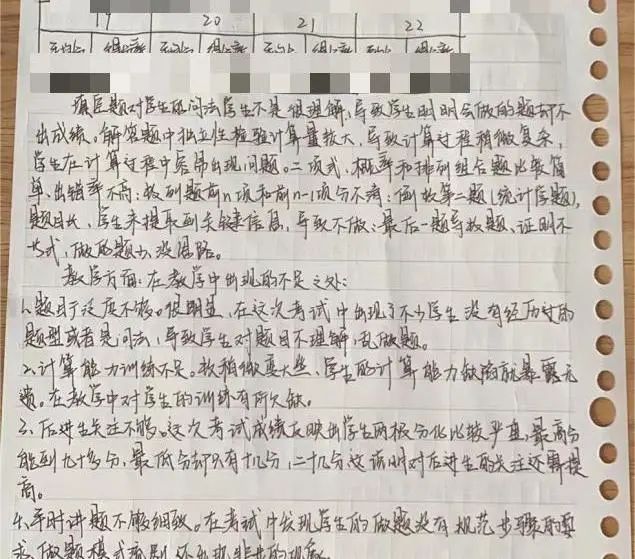 19 20 21 22
平均分 得分率 平均分 得分率 平均分 得分率 平均分 得分率
填空题对学生的问法学生不是很理解,导致学生明明会做的题却不
出成绩。解答题中独立性检验计算量较大,导致计算过程稍微复杂,
学生在计算过程中容易出现问题。二项式、概率和排列组合题比较简
单、出错率不高;数列题前n项和前n-1项分不清;倒数第二题(统计学题),
题目长、学生未提取到关键信息,导致不做;最后一题导数题、证明不
等式,做的题少,没思路。
教学方面:在教学中出现的不足之处:
1、题目广泛度不够。很明显,在这次考试中出现了不少学生没有经历过的
题型或者是问法,导致学生对题目不理解,乱做题。
2、计算能力训练不足。数稍微变大些,学生的计算能力缺陷就暴露无
遗。在教学中对学生的训练有所欠缺。
3、后进生关注不够。这次考试成绩反映出学生两极分化比较严重,最高分
能到九十多分,最低分却只有十几分,二十几分,这说明对后进生的关注还需提
高。
4、平时讲题不够细致。在考试中发现学生的做题没有规范步骤的要
求,做题模式